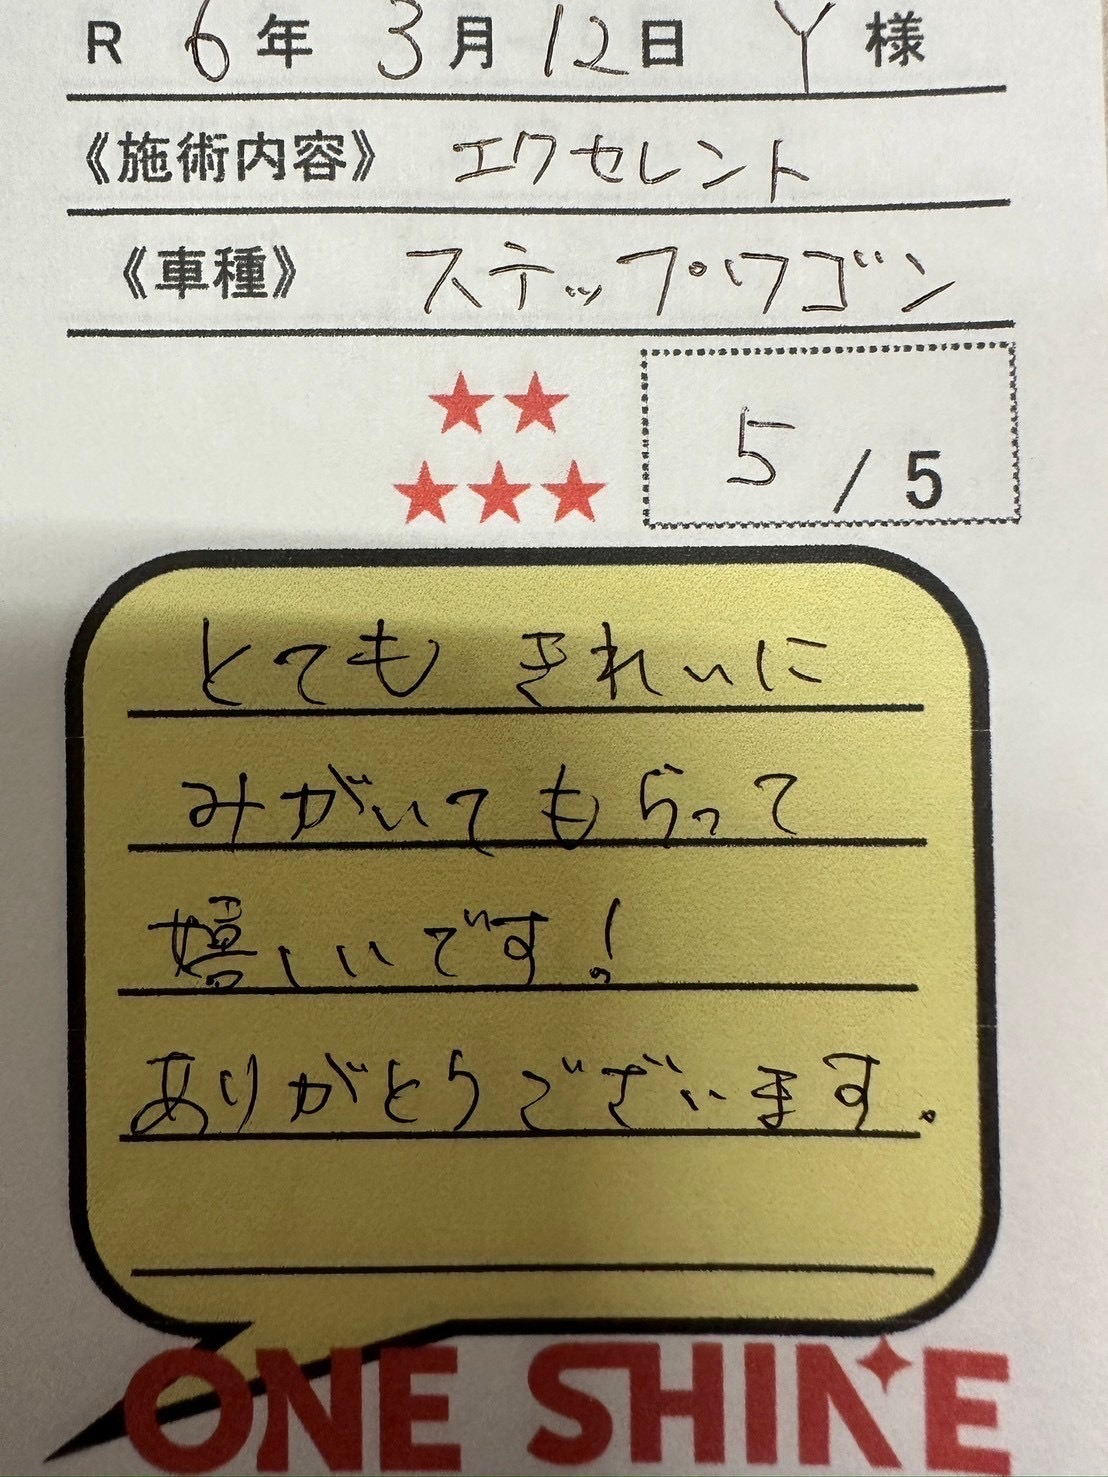 R 6年 3月 12日 Y 様
《施術内容》 エクセレント
《車種》 ステップワゴン
★★
★★★
5 / 5
とても きれいに
みがいてもらって
嬉しいです!
ありがとうございます。
ONE SHINE